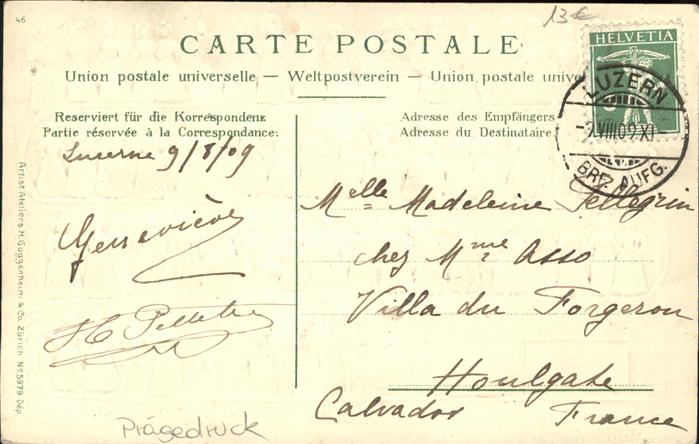 46
13€
CARTE POSTALE
Union postale universelle — Weltpostverein — Union postale unive
HELVETIA
LUZERN
-9.VIII.09.XI
BRF. AUFG.
Reserviert für die Korrespondenz
Partie réservée à la Correspondance:
Adresse des Empfängers
Adresse du Destinataire
Lucerne 9/8/09
Geneviève
Pelletier
Melle Madeleine Pellegrin
chez Mme Asso
Villa du Forgeron
Houlgate
Calvados France
Artist. Ateliers H. Guggenheim & Co. Zürich No 5979 Dép.
Prägedruck